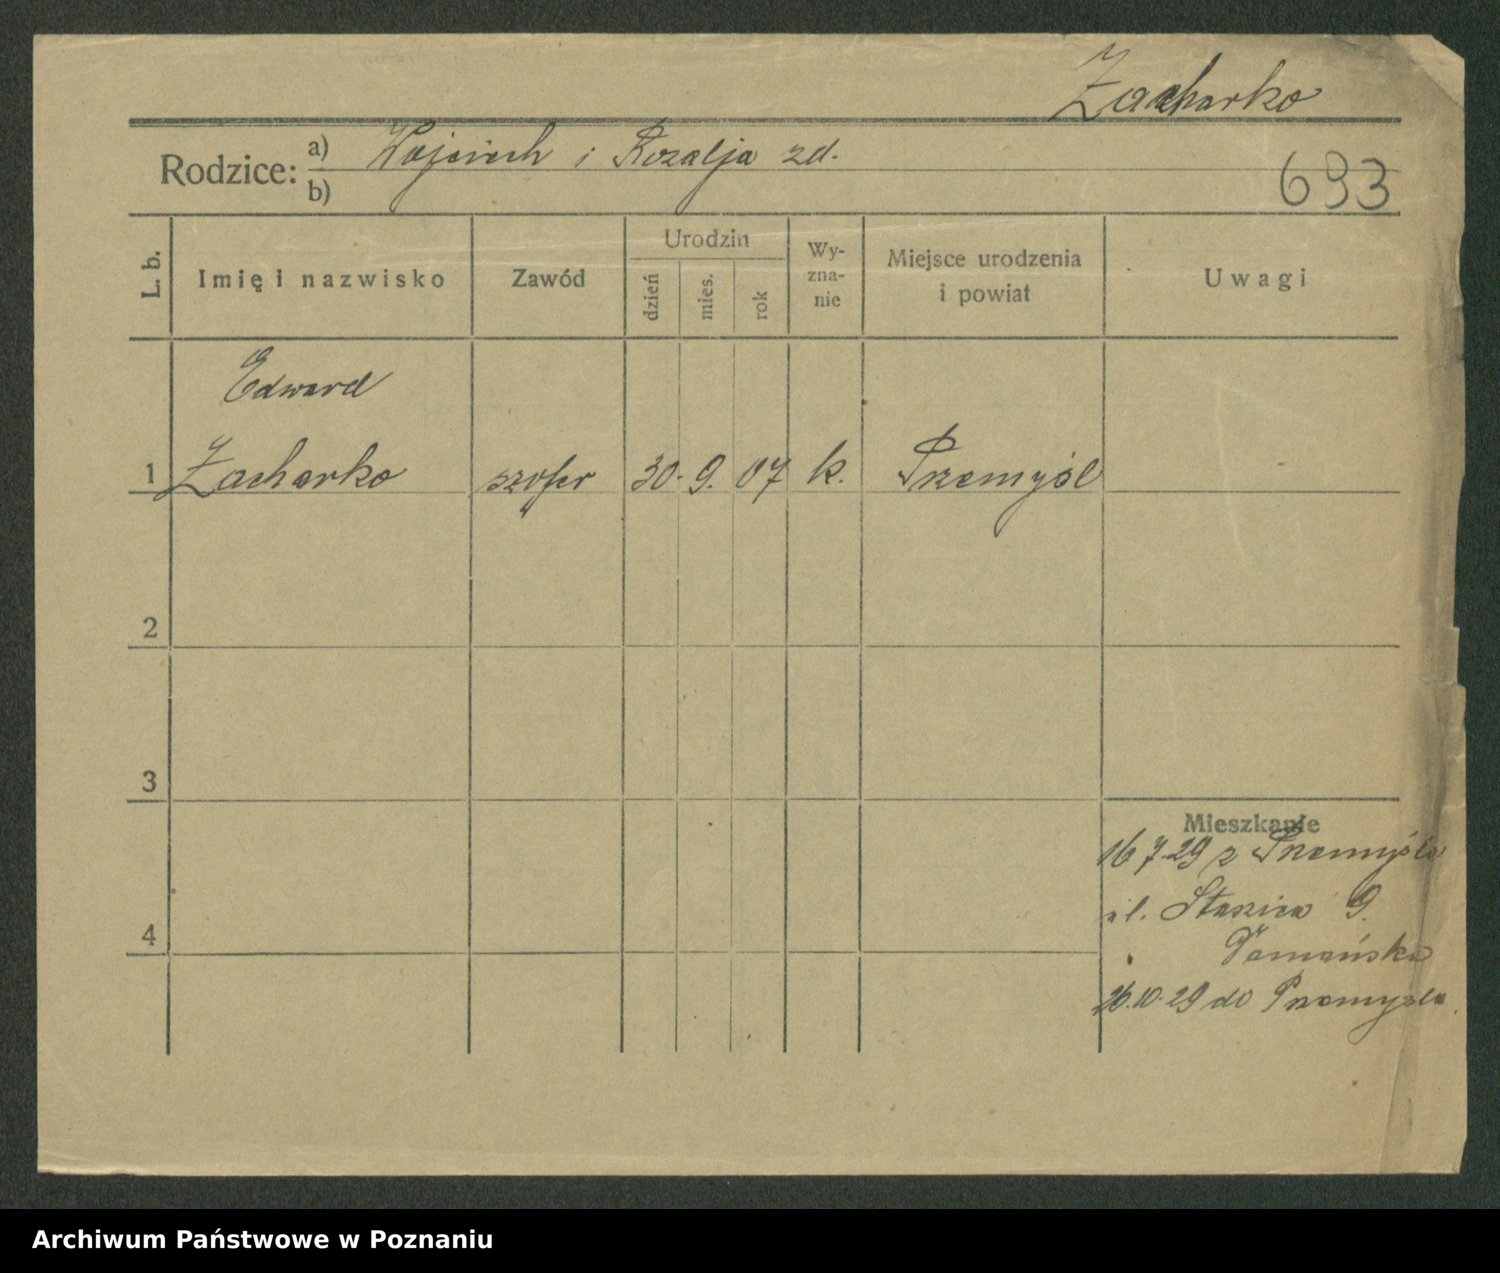 Zacharko
Rodzice: a) Wojciech i Rozalja zd.
b)
693
L. b.
Imię i nazwisko
Zawód
Urodzin
dzień
mies.
rok
Wy-
zna-
nie
Miejsce urodzenia
i powiat
Uwagi
Edward
1 Zacharko szofer 30. 9. 07 k. Przemyśl
2
3
Mieszkanie
16 7.29 z Przemyśla
ul. Staszica 9.
4
26.10.29 do Przemyśla
Archiwum Państwowe w Poznaniu